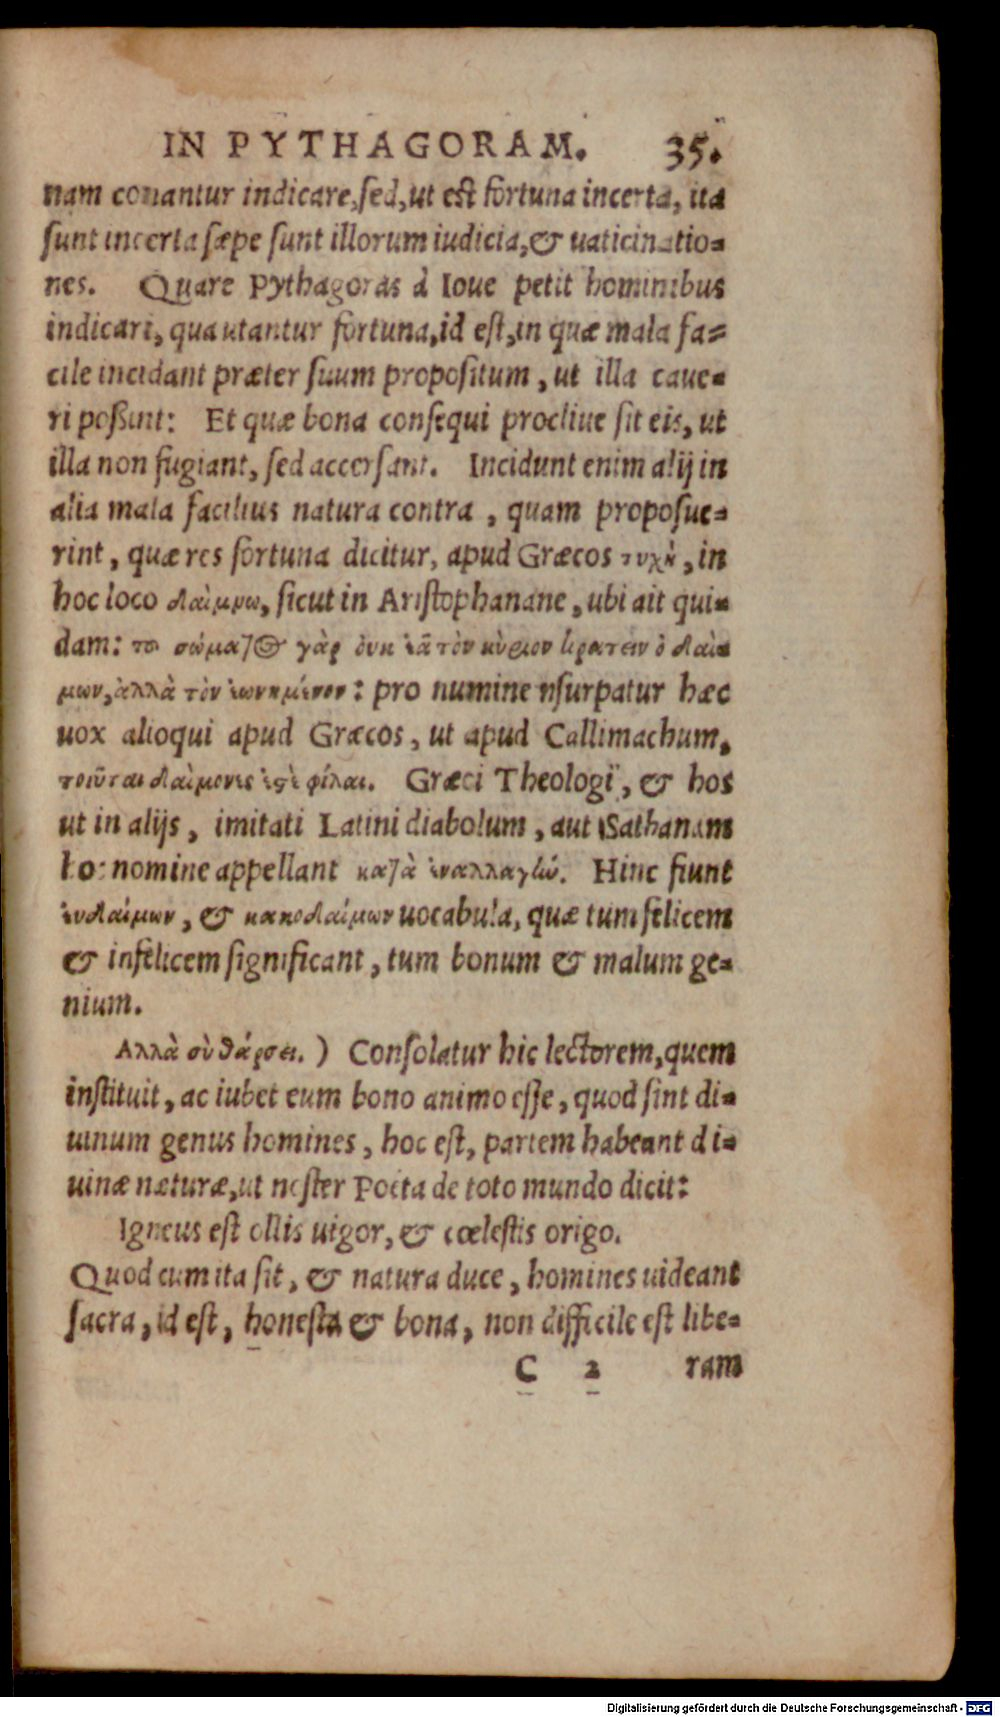 IN PYTHAGORAM. 35.
nam conantur indicare, sed, ut est fortuna incerta, ita
sunt incerta sæpe sunt illorum iudicia, & uaticinatio=
nes. Quare Pythagoras à Ioue petit hominibus
indicari, qua utantur fortuna, id est, in quæ mala fa=
cile incidant præter suum propositum, ut illa caue=
ri possint: Et quæ bona consequi procliue sit eis, ut
illa non fugiant, sed accersant. Incidunt enim alij in
alia mala facilius natura contra, quam proposue=
rint, quæ res fortuna dicitur, apud Græcos τυχὴ, in
hoc loco δαίμονι, sicut in Aristophanane, ubi ait qui=
dam: το σώματος γὰρ ὀυκ ἐᾶ τὸν κύριον κρατειν ὁ δαὶ=
μων, ἀλλὰ τὸν ἐωνημένον: pro numine nsurpatur hæc
uox alioqui apud Græcos, ut apud Callimachum,
δαίμονες φίλαι. Græci Theologi, & hos
ut in alijs, imitati Latini diabolum, aut Sathanam
ho: nomine appellant κατὰ ἐναλλαγὼ. Hinc fiunt
ἐυδαίμων, & κακοδαίμων uocabula, quæ tum felicem
& infelicem significant, tum bonum & malum ge=
nium.
Αλλὰ σὺ θάρσει.) Consolatur hic lectorem, quem
instituit, ac iubet eum bono animo esse, quod sint di=
uinum genus homines, hoc est, partem habeant di=
uinæ naturæ, ut noster Poeta de toto mundo dicit:
Igneus est ollis uigor, & cœlestis origo.
Quod cum ita sit, & natura duce, homines uideant
sacra, id est, honesta & bona, non difficile est libe=
C 2 ram
Digitalisierung gefördert durch die Deutsche Forschungsgemeinschaft - DFG